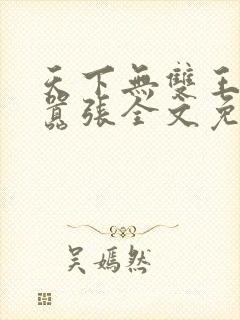 天下無雙王
囂張全文免
吳嫣然